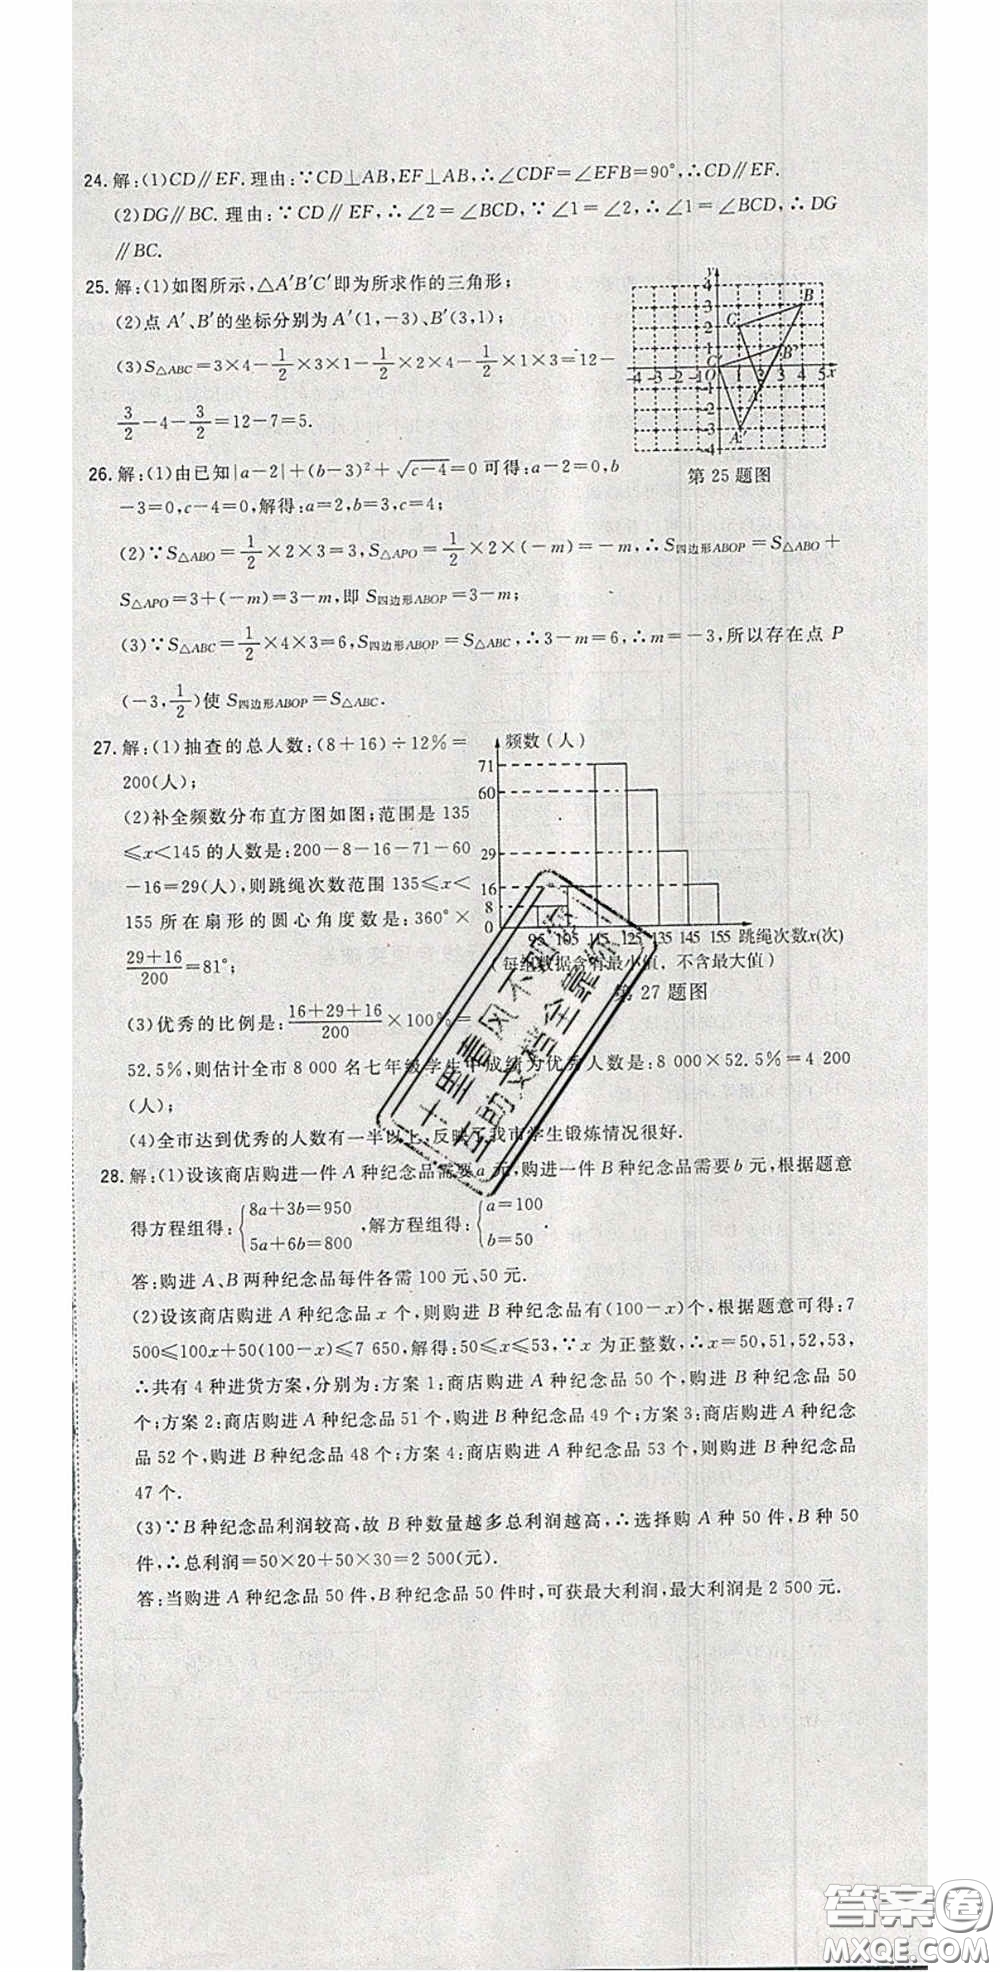 24. 解:(1)CD∥EF.理由:∵CD⊥AB,EF⊥AB,∴∠CDF=∠EFB=90°,∴CD∥EF.
(2)DG∥BC.理由:∵CD∥EF,∴∠2=∠BCD,∵∠1=∠2,∴∠1=∠BCD,∴DG
∥BC.
25. 解:(1)如图所示,△A′B′C′即为所求作的三角形;
(2)点A′、B′的坐标分别为A′(1,-3)、B′(3,1);
(3)S△ABC=3×4-1/2×3×1-1/2×2×4-1/2×1×3=12-
3/2-4-3/2=12-7=5.
y
4
3
2
1
-4-3-2-1O 1 2 3 4 5 x
-1
-2
-3
-4
B
C
C′
B′
A
A′
第25题图
26. 解:(1)由已知|a-2|+(b-3)²+√c-4=0可得:a-2=0,b
-3=0,c-4=0,解得:a=2,b=3,c=4;
(2)∵S△ABO=1/2×2×3=3,S△APO=1/2×2×(-m)=-m,∴S四边形ABOP=S△ABO+
S△APO=3+(-m)=3-m,即S四边形ABOP=3-m;
(3)∵S△ABC=1/2×4×3=6,S四边形ABOP=S△ABC,∴3-m=6,∴m=-3,所以存在点P
(-3,1/2)使S四边形ABOP=S△ABC.
27. 解:(1)抽查的总人数:(8+16)÷12%=
200(人);
(2)补全频数分布直方图如图;范围是135
≤x<145的人数是:200-8-16-71-60
-16=29(人),则跳绳次数范围135≤x<
155所在扇形的圆心角度数是:360°×
29+16/200=81°;
频数(人)
71
60
29
16
8
0
95 105 115 125 135 145 155 跳绳次数x(次)
(每组数据含有最小值,不含最大值)
第27题图
(3)优秀的比例是:16+29+16/200×100%=
52.5%,则估计全市8 000名七年级学生中成绩为优秀人数是:8 000×52.5%=4 200
(人);
(4)全市达到优秀的人数有一半以上,反映了我市学生锻炼情况很好.
28. 解:(1)设该商店购进一件A种纪念品需要a元,购进一件B种纪念品需要b元,根据题意
得方程组得:{8a+3b=950 5a+6b=800,解方程组得:{a=100 b=50.
答:购进A、B两种纪念品每件各需100元、50元.
(2)设该商店购进A种纪念品x个,则购进B种纪念品有(100-x)个,根据题意可得:7
500≤100x+50(100-x)≤7 650,解得:50≤x≤53,∵x为正整数,∴x=50,51,52,53,
∴共有4种进货方案,分别为:方案1:商店购进A种纪念品50个,则购进B种纪念品50
个;方案2:商店购进A种纪念品51个,则购进B种纪念品49个;方案3:商店购进A种纪念
品52个,则购进B种纪念品48个;方案4:商店购进A种纪念品53个,则购进B种纪念品
47个.
(3)∵B种纪念品利润较高,故B种数量越多总利润越高,∴选择购A种50件,B种50
件,∴总利润=50×20+50×30=2 500(元).
答:当购进A种纪念品50件,B种纪念品50件时,可获最大利润,最大利润是2 500元.
十里春风不如你
互助文档全靠你
答案卷
MXQE.COM